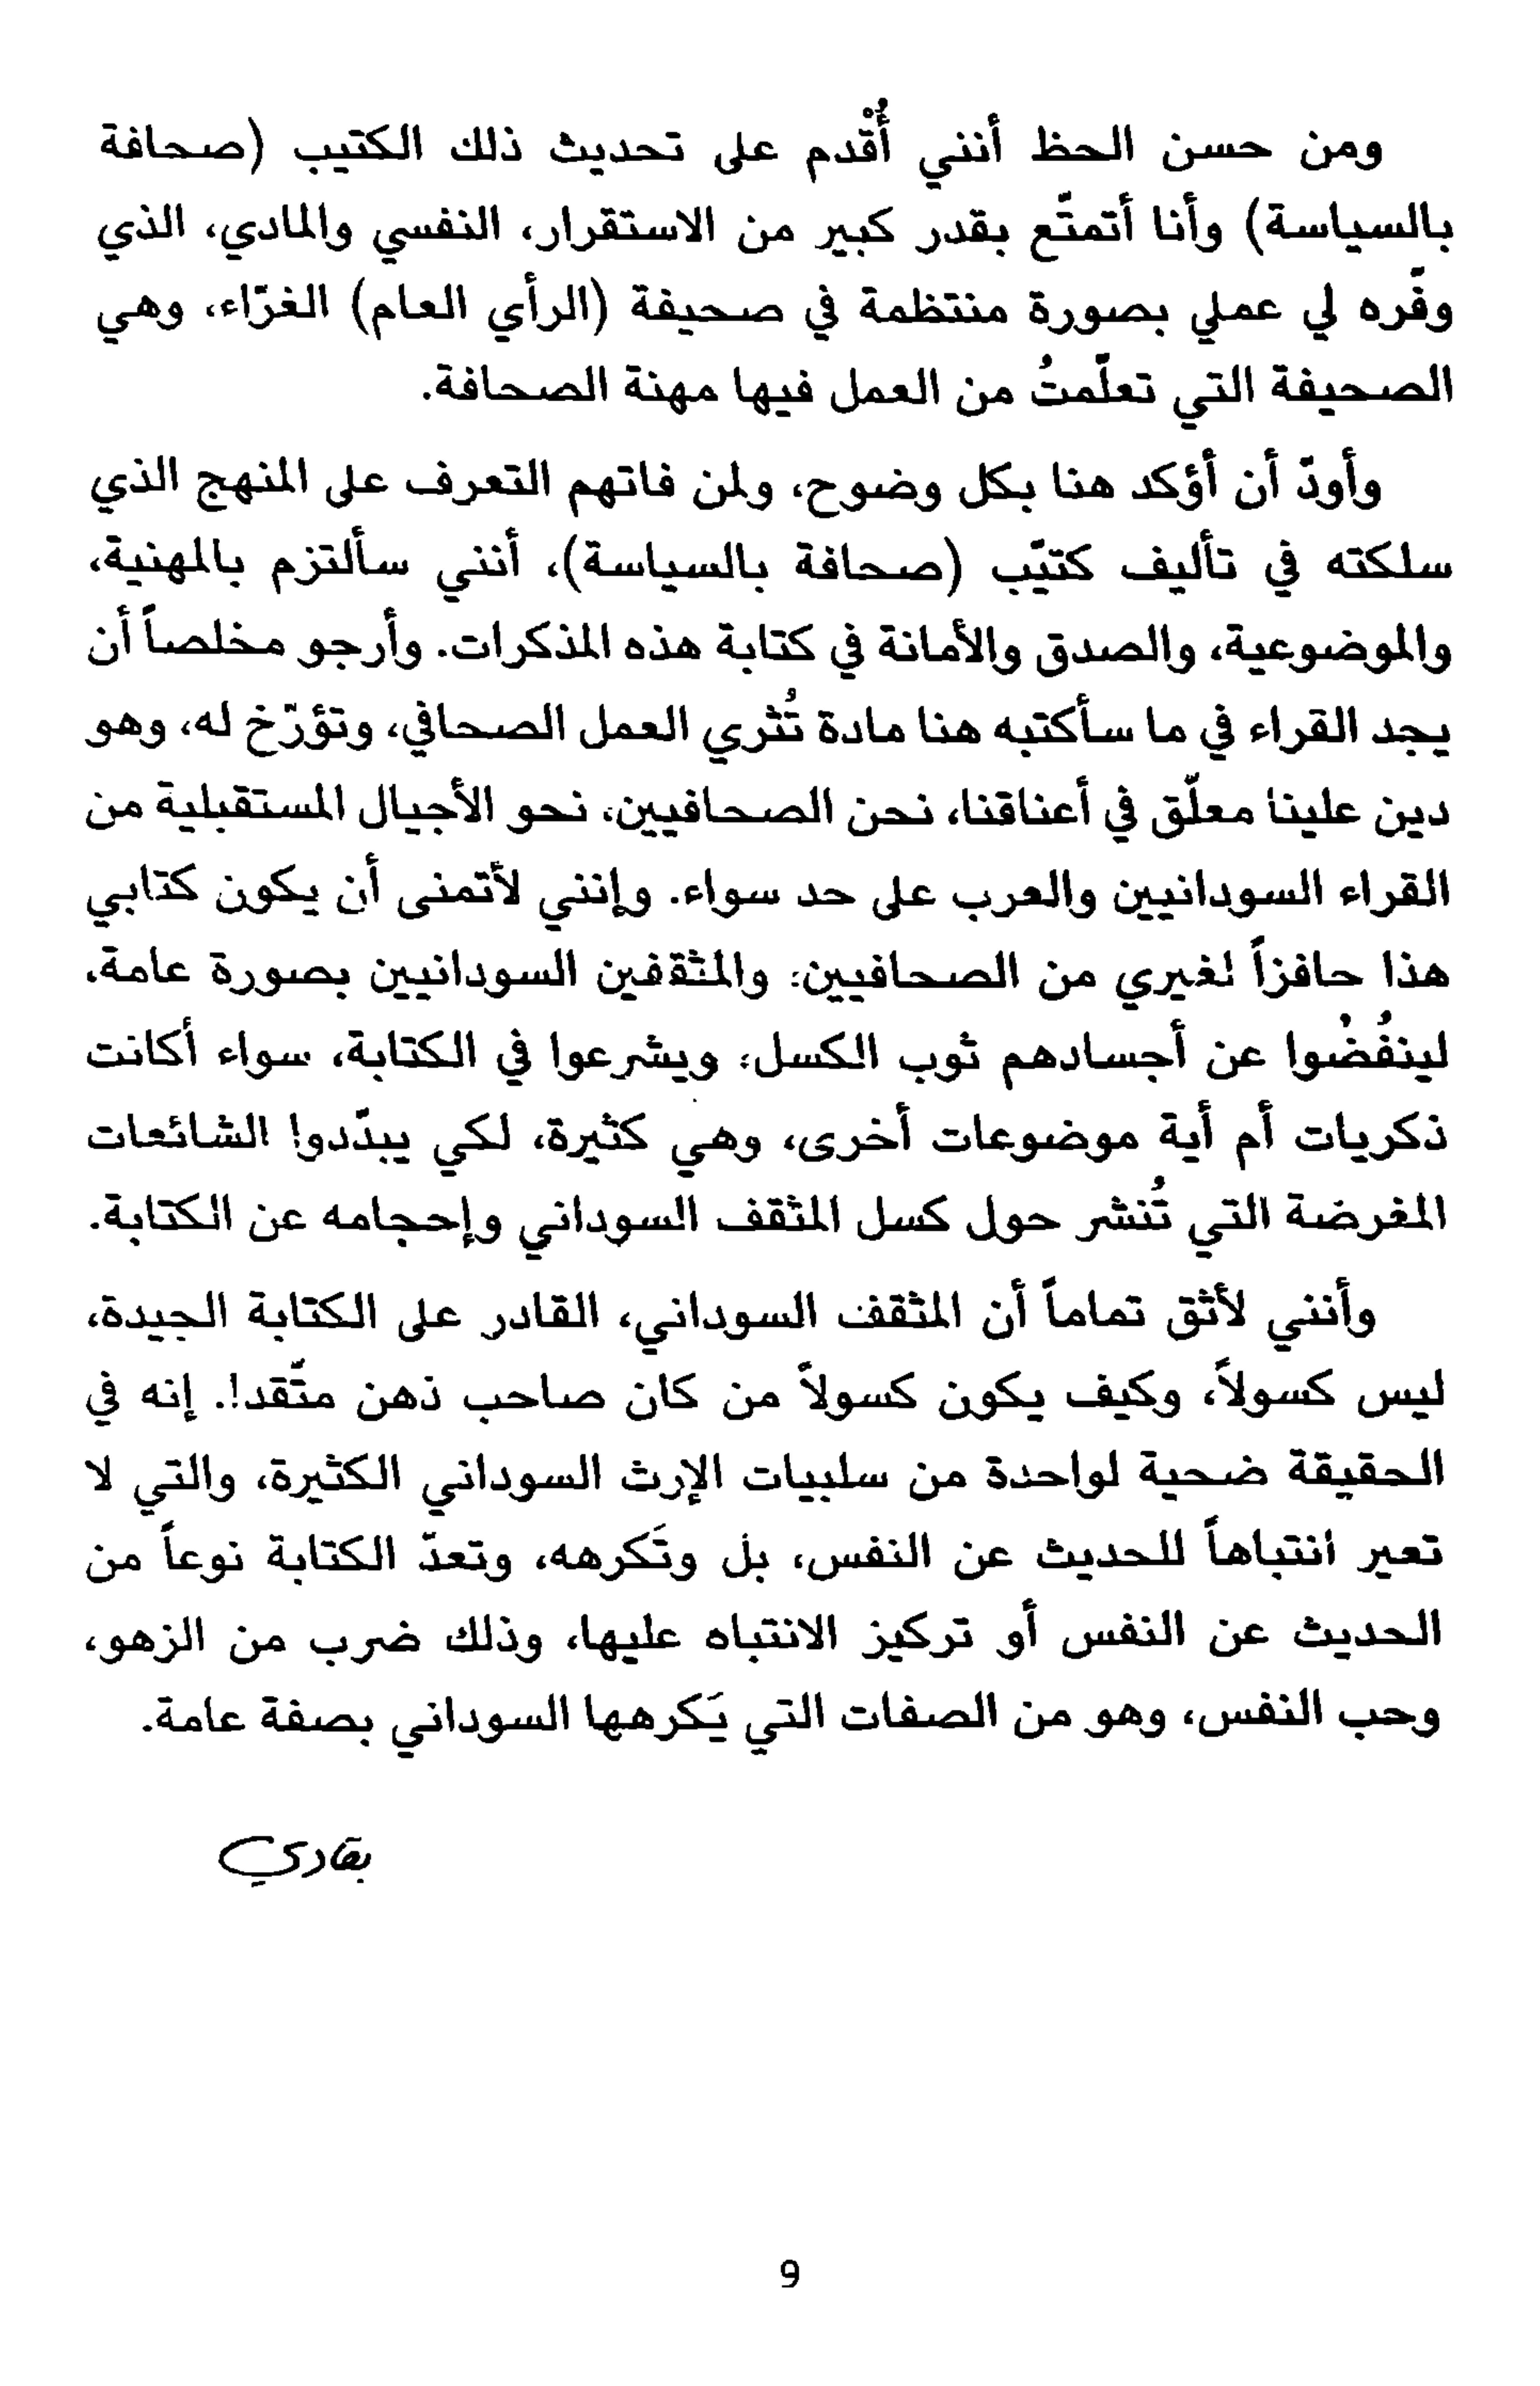 ومن حسن الحظ أنني أُقْدم على تحديث ذلك الكتيب (صحافة
بالسياسة) وأنا أتمتّع بقدر كبير من الاستقرار، النفسي والمادي، الذي
وفّره لي عملي بصورة منتظمة في صحيفة (الرأي العام) الغرّاء، وهي
الصحيفة التي تعلّمتُ من العمل فيها مهنة الصحافة.
وأودّ أن أؤكد هنا بكل وضوح، ولمن فاتهم التعرف على المنهج الذي
سلكته في تأليف كتيّب (صحافة بالسياسة)، أنني سألتزم بالمهنية،
والموضوعية، والصدق والأمانة في كتابة هذه المذكرات. وأرجو مخلصاً أن
يجد القراء في ما سأكتبه هنا مادة تُثري العمل الصحافي، وتؤرّخ له، وهو
دين علينا معلّق في أعناقنا، نحن الصحافيين، نحو الأجيال المستقبلية من
القراء السودانيين والعرب على حد سواء. وإنني لأتمنى أن يكون كتابي
هذا حافزاً لغيري من الصحافيين، والمثقفين السودانيين بصورة عامة،
لينفُضُوا عن أجسادهم ثوب الكسل، ويشرعوا في الكتابة، سواء أكانت
ذكريات أم أية موضوعات أخرى، وهي كثيرة، لكي يبدّدوا الشائعات
المغرضة التي تُنشر حول كسل المثقف السوداني وإحجامه عن الكتابة.
وأنني لأثق تماماً أن المثقف السوداني، القادر على الكتابة الجيدة،
ليس كسولاً، وكيف يكون كسولاً من كان صاحب ذهن متّقد!. إنه في
الحقيقة ضحية لواحدة من سلبيات الإرث السوداني الكثيرة، والتي لا
تعير انتباهاً للحديث عن النفس، بل وتَكرهه، وتعدّ الكتابة نوعاً من
الحديث عن النفس أو تركيز الانتباه عليها، وذلك ضرب من الزهو،
وحب النفس، وهو من الصفات التي يَكرهها السوداني بصفة عامة.
بقادي
9